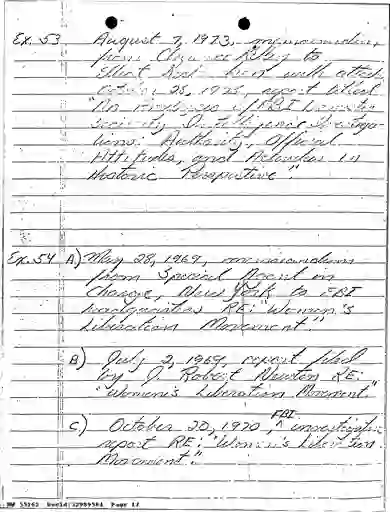 Ex. 53 August 7, 1973, memorandum
from Clarence Kelley to
Elliot with attached
October 28, 1975, report titled
"An Analysis of FBI Domestic
Security Intelligence Investiga-
tions: Authority, Official
Attitudes, and Activities in
Historic Perspective."
Ex. 54 A) May 28, 1969, memorandum
from Special Agent in
Charge, New York to FBI
headquarters RE: "Women's
Liberation Movement"
B) July 2, 1969, report filed
by J. Robert Newton RE:
"Women's Liberation Movement."
C) October 20, 1970, ^FBI investigative
report RE: "Women's Liberation
Movement."
NW 55163 DocId:32989584 Page 17